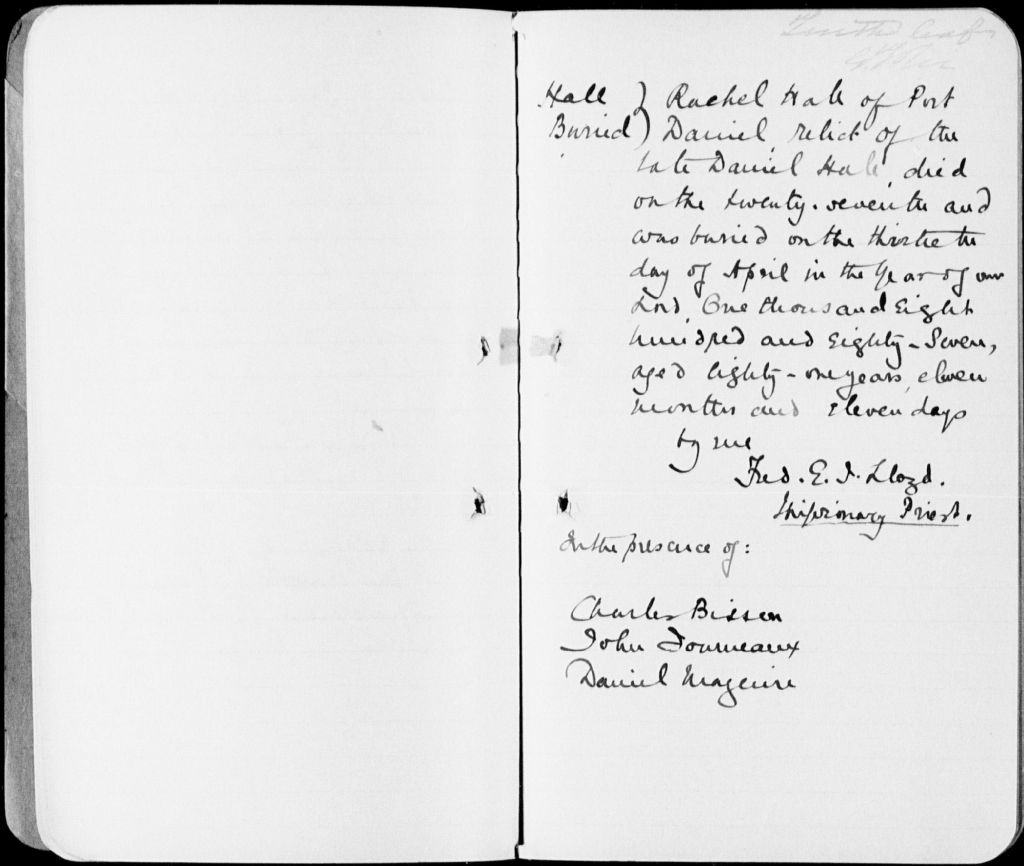 Tenth Leaf
Hall ) Rachel Hall of Port
Buried ) Daniel, relict of the
late Daniel Hall, died
on the twenty-seventh and
was buried on the thirtieth
day of April in the Year of our
Lord, One thousand Eight
hundred and Eighty-Seven,
aged Eighty-one years, eleven
months and eleven days
by me
Fred. E. J. Lloyd.
Missionary Priest.
In the presence of:
Charles Bisson
John Fourneaux
Daniel Maguire